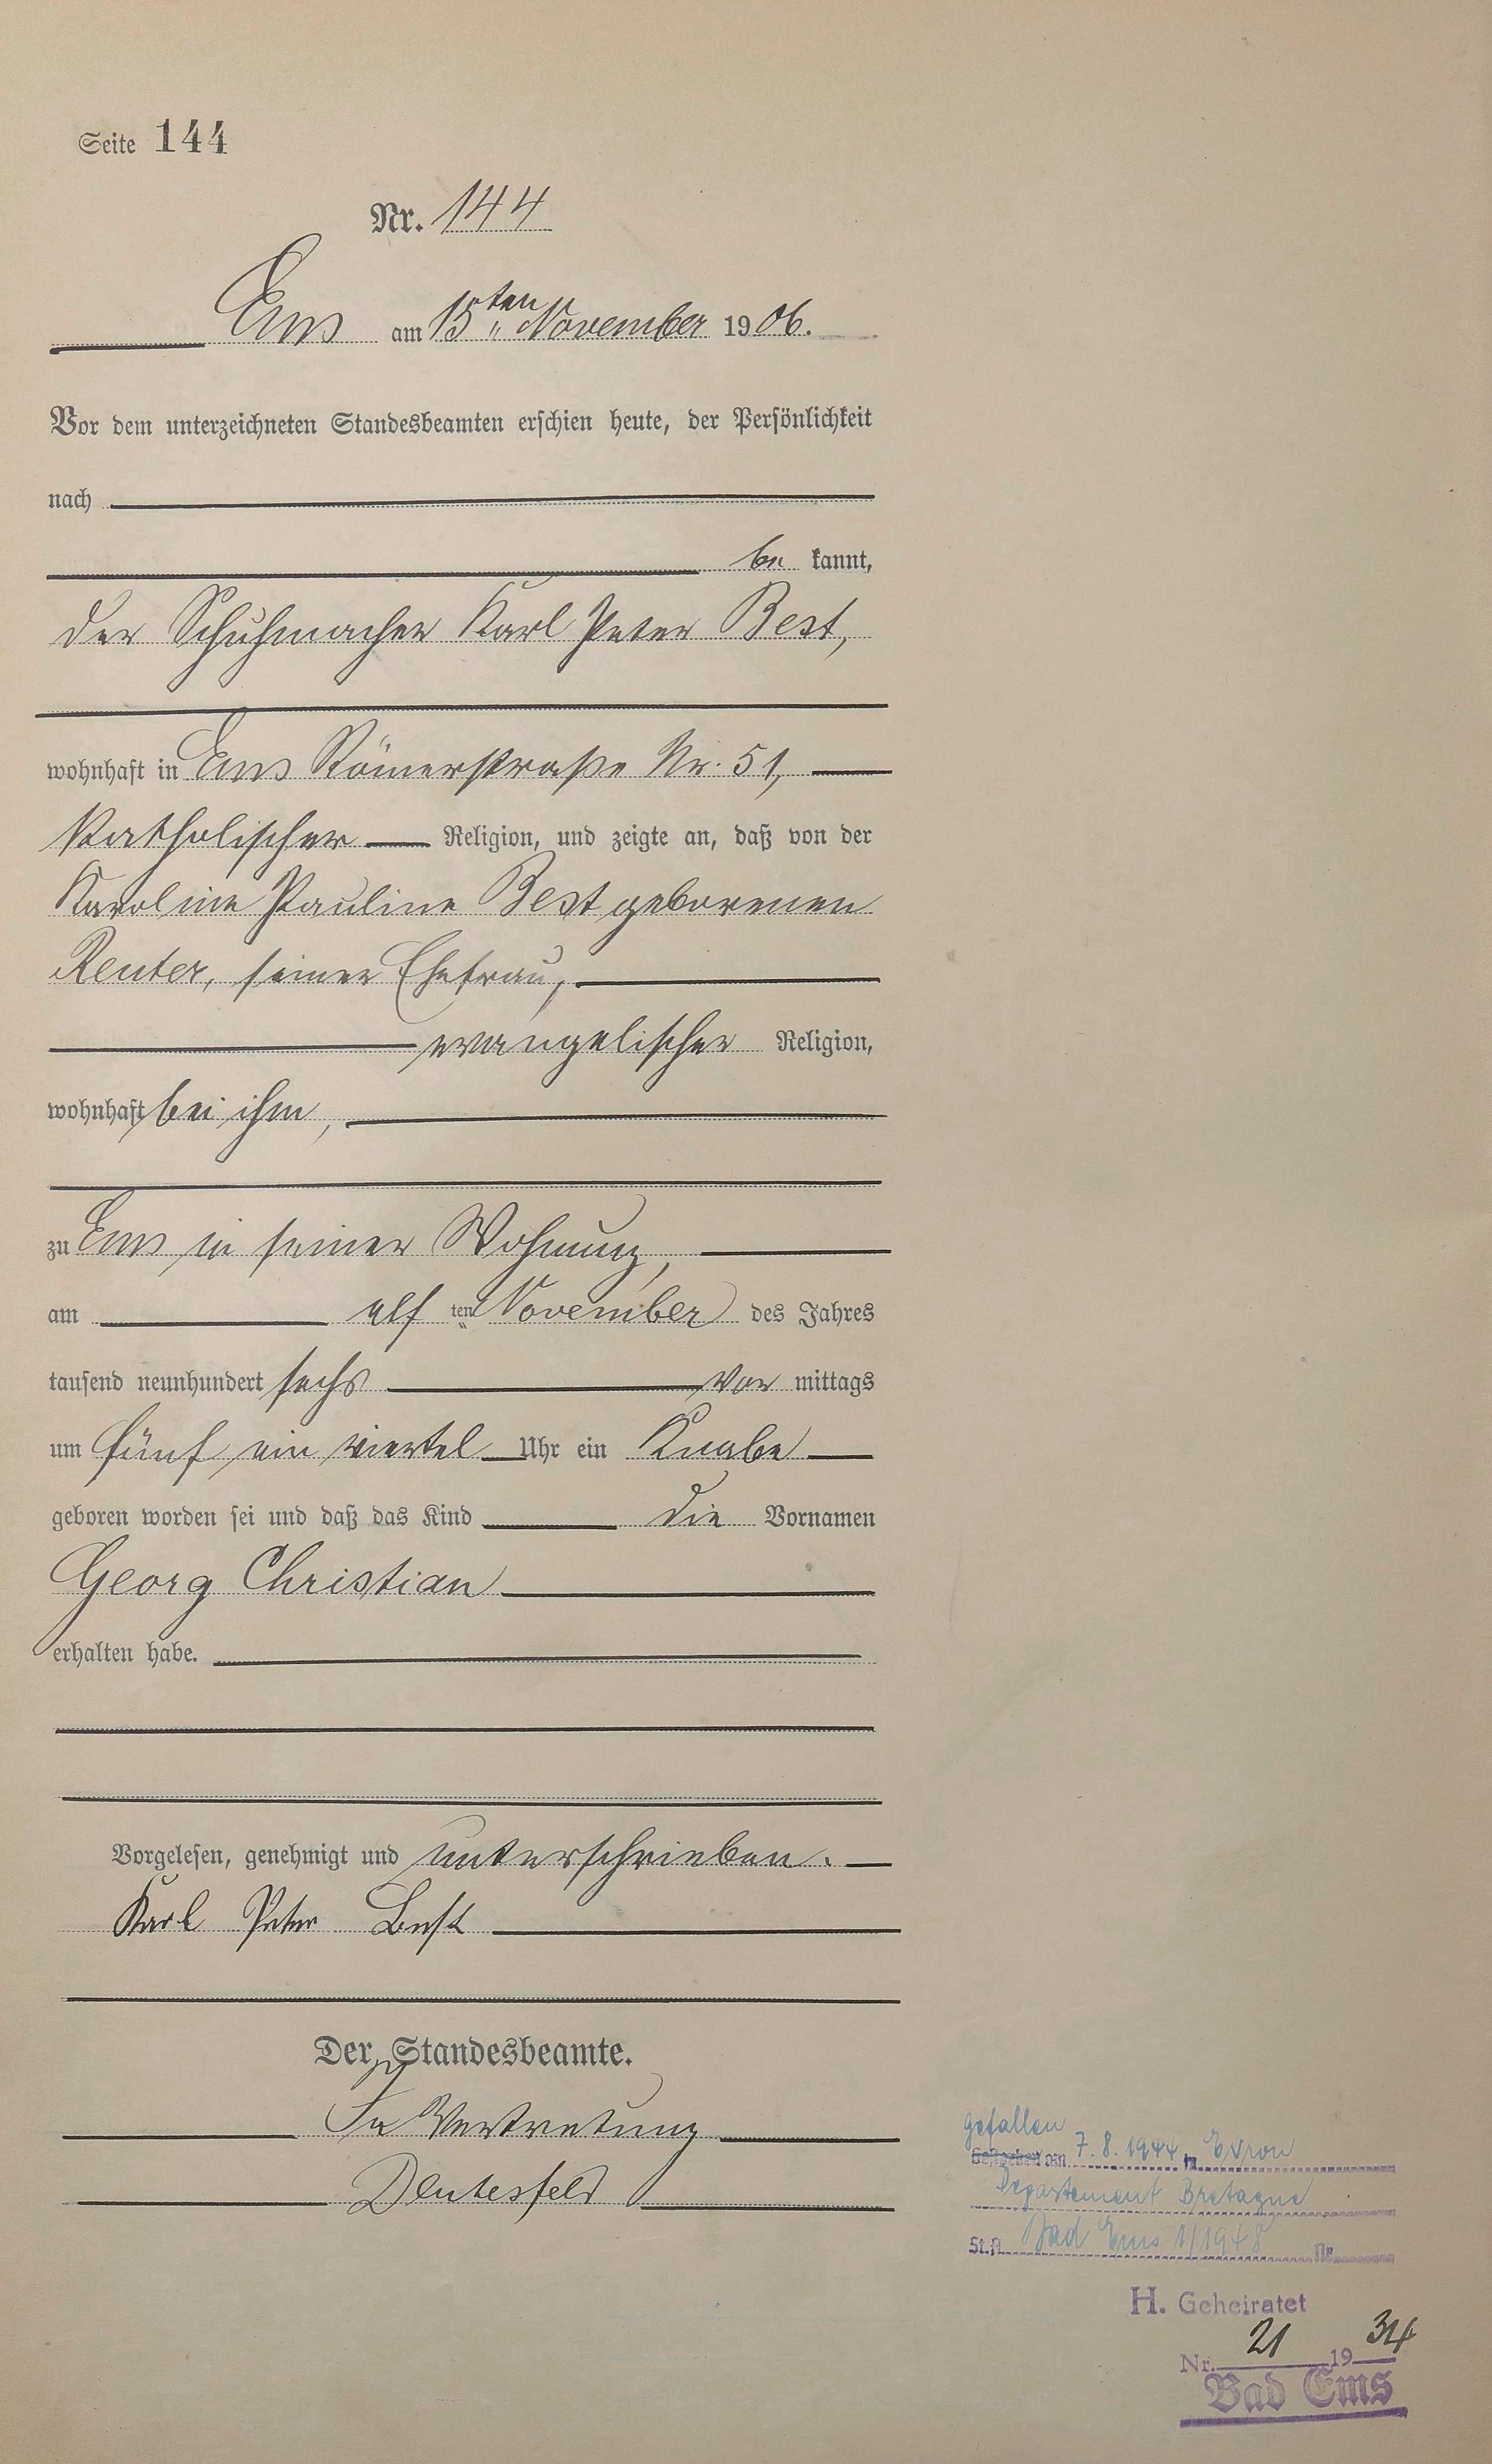 Seite 144
Nr. 144
Ems am 15ten November 1906.
Vor dem unterzeichneten Standesbeamten erschien heute, der Persönlichkeit
nach
be kannt,
der Schuhmacher Karl Peter Best,
wohnhaft in Ems Römerstraße Nr. 51,
katholischer Religion, und zeigte an, daß von der
Karoline Pauline Best geborenen
Reuter, seiner Ehefrau,
evangelischer Religion,
wohnhaft bei ihm,
zu Ems in seiner Wohnung,
am elf ten November des Jahres
tausend neunhundert sechs vor mittags
um fünf ein viertel Uhr ein Knabe
geboren worden sei und daß das Kind die Vornamen
Georg Christian
erhalten habe.
Vorgelesen, genehmigt und unterschrieben.
Karl Peter Best
Der Standesbeamte.
In Vertretung
gefallen
Gestorben am 7. 8. 1944 in Evron
Departement Bretagne
St.A. Bad Ems 1/1948 Nr.
H. Geheiratet
Nr. 21 1934
Bad Ems